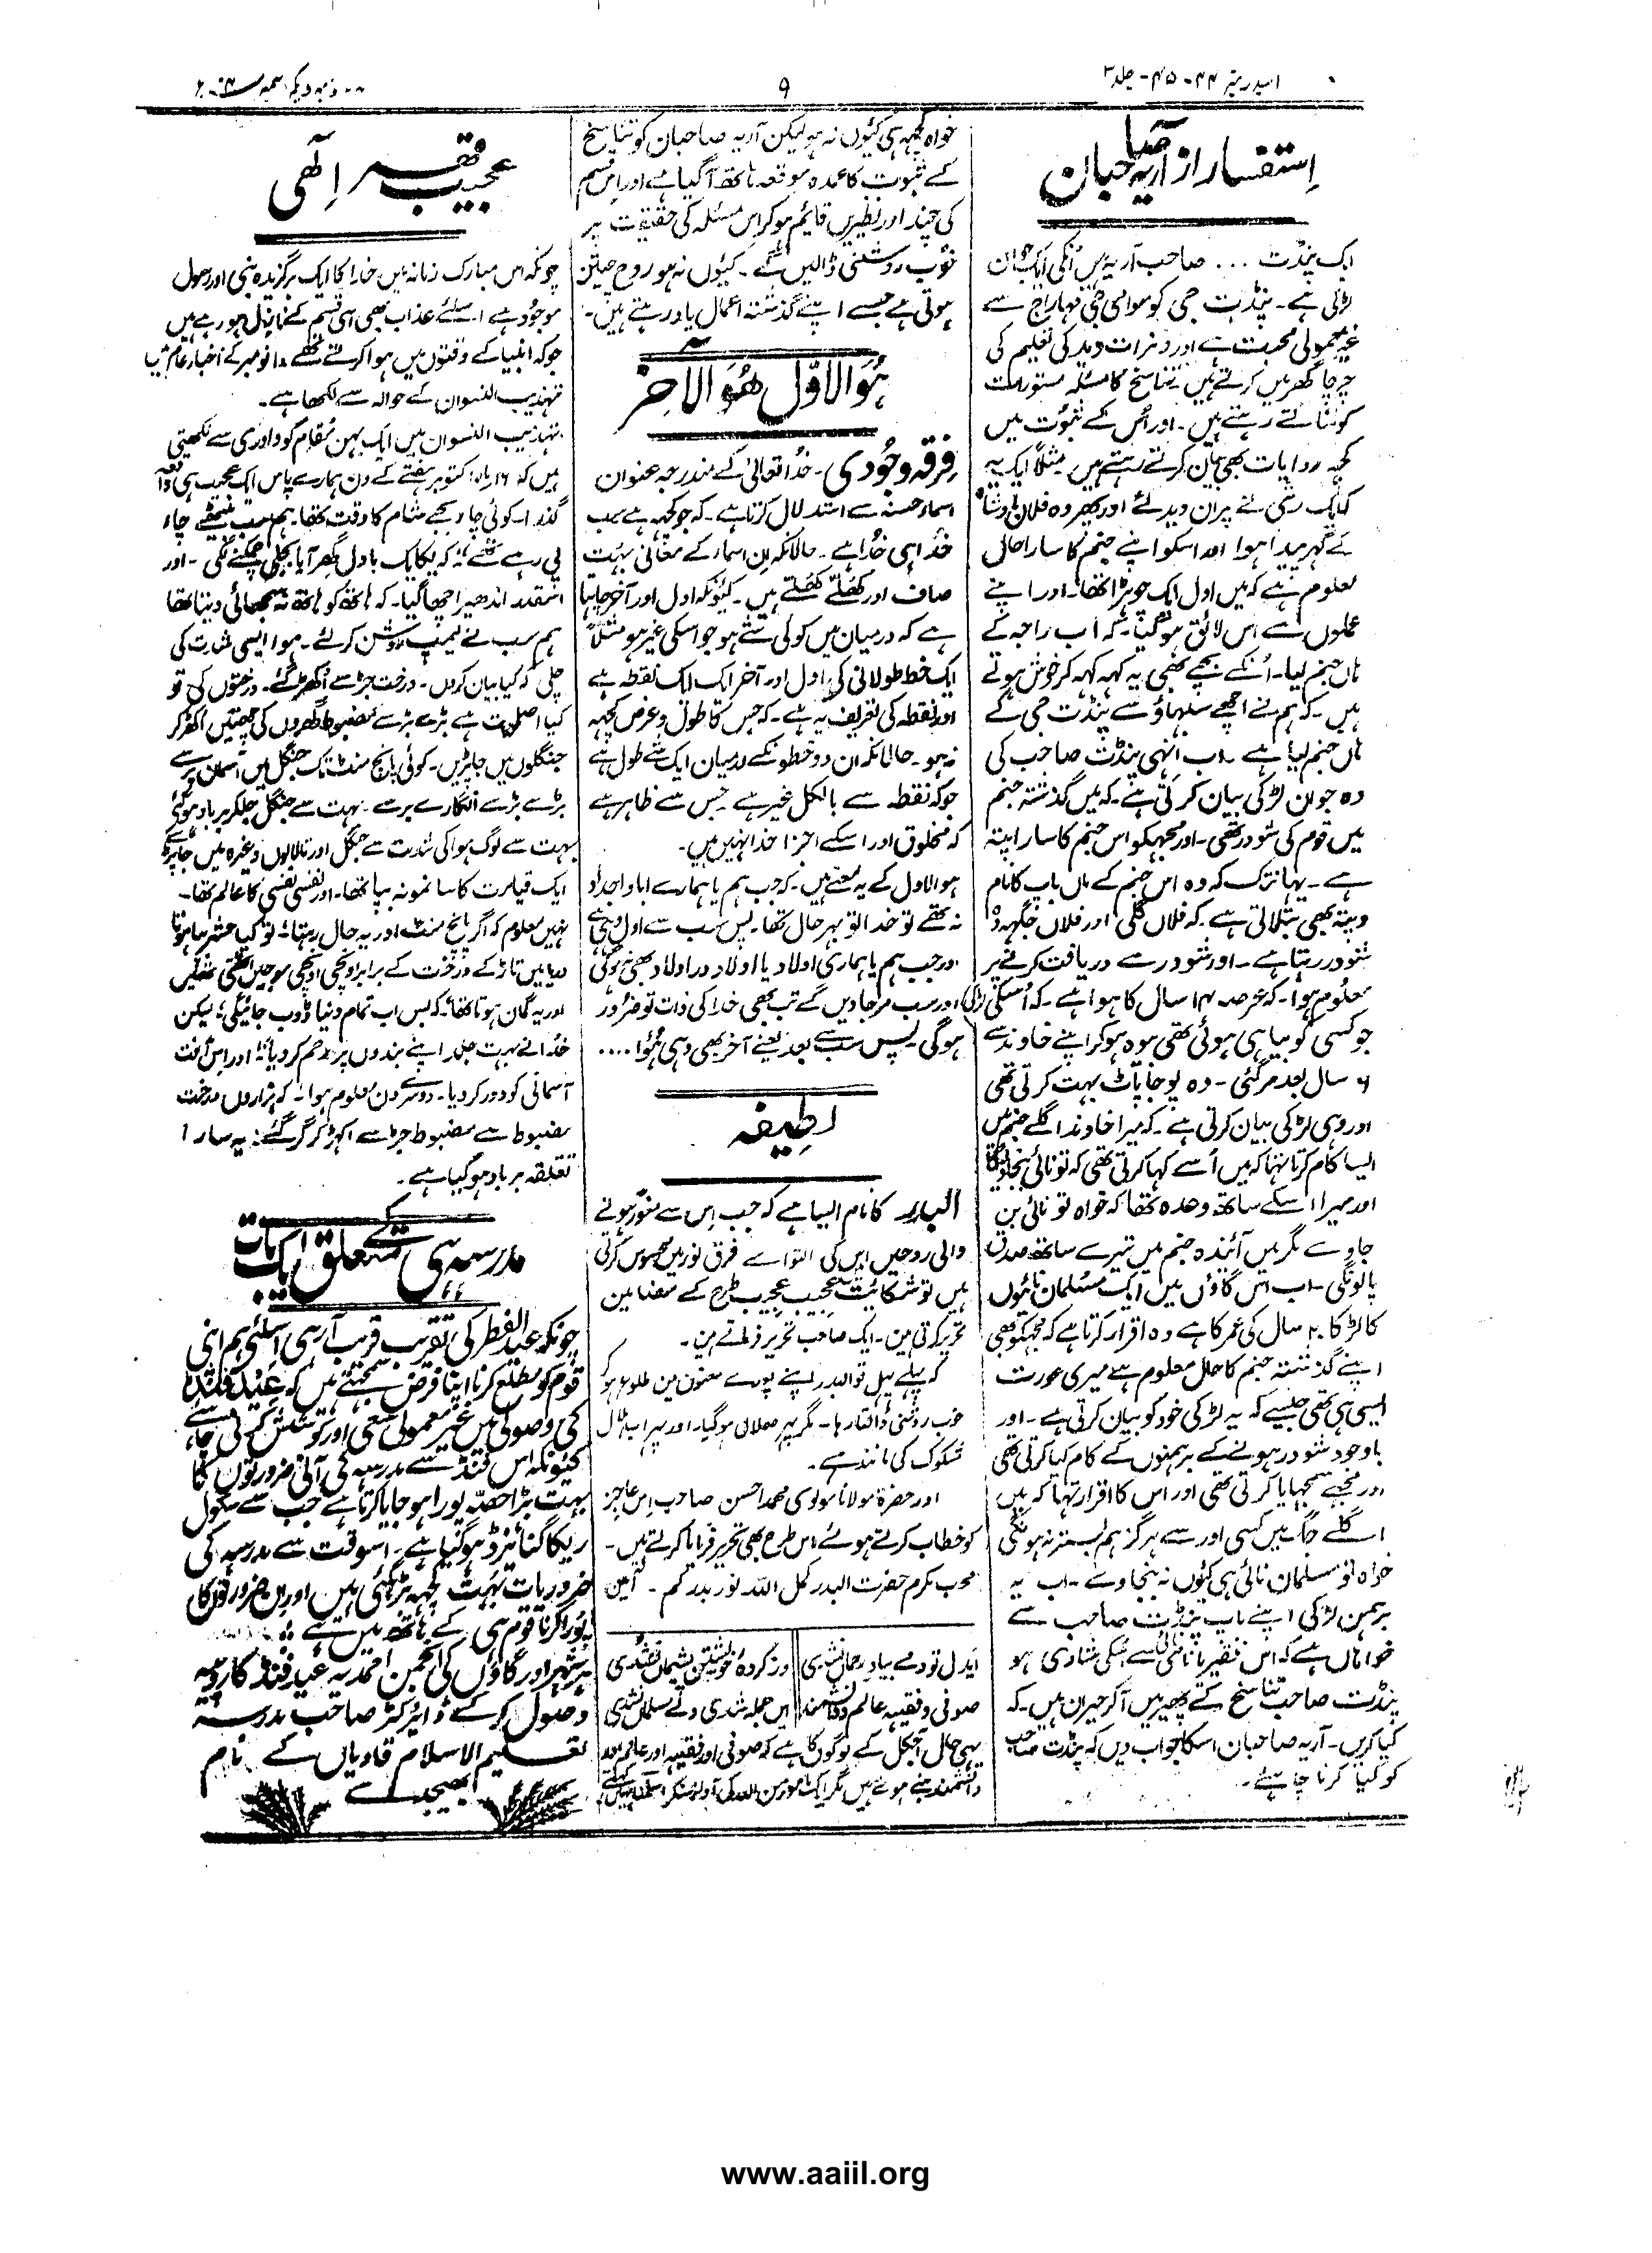 البدر نمبر ۴۴-۴۵- جلد ۳
۹
استفسار از آریہ صاحبان
ایک پنڈت ... صاحب آریہ ہیں انکی ایک جوان
لڑکی ہے۔ پنڈت جی کو سوامی جی مہاراج سے
غیر معمولی محبت ہے اور دن رات وید کی تعلیم کی
چرچا گھر میں کرتے ہیں تناسخ کا مسئلہ مستورات
کو سناتے رہتے ہیں۔ اور اس کے ثبوت میں
کچہہ روایات بھی بیان کرتے رہتے ہیں۔ مثلاً ایک یہ
کہ ایک رشی نے پران دیدئے اور پھر وہ فلاں بادشاہ
کے گہر پیدا ہوا اور اسکو اپنے جنم کا سارا حال
معلوم ہے کہ میں اول ایک چوہڑا تھا۔ اور اپنے
عملوں سے اس لائق ہو گیا۔ کہ اب راجہ کے
ہاں جنم لیا۔ اُنکے بچے بھی یہ کہہ کہہ کر خوش ہوتے
ہیں۔ کہ ہم نے اچھے سبہاؤ سے پنڈت جی کے
ہاں جنم لیا ہے۔ اب انہی پنڈت صاحب کی
وہ جوان لڑکی بیان کرتی ہے۔ کہ میں گذشتہ جنم
میں قوم کی شودر تھی۔ اور مجہکو اس جنم کا سارا پتہ
ہے۔ یہانتک کہ وہ اس جنم کے ماں باپ کا نام
و پتہ بھی بتلاتی ہے۔ کہ فلاں گلی اور فلاں جگہہ وہ
شودر رہتا ہے۔ اور شودر سے دریافت کرنے پر
معلوم ہوا۔ کہ عرصہ ۱۴ سال کا ہوا ہے۔ کہ اُسکی لڑکی
جو کسی کو بیاہی ہوئی تھی بیوہ ہوکر اپنے خاوند سے
۶ سال بعد مر گئی۔ وہ پوجا پاٹ بہت کرتی تھی
اور وہی لڑکی بیان کرتی ہے۔ کہ میرا خاوند اگلے جنم میں
ایسا کام کرتا تہا کہ میں اُسے کہا کرتی تھی کہ تو نائی بنجاویگا
اور میرا اسکے ساتھ وعدہ تھا کہ خواہ تو نائی بن
جاوے مگر میں آئیندہ جنم میں تیرے ساتھ صدق
پالونگی۔ اب اس گاؤں میں ایک مسلمان نائیوں
کا لڑکا ۲۰ سال کی عمر کا ہے وہ اقرار کرتا ہے کہ مجہکو بھی
اپنے گذشتہ جنم کا حال معلوم ہے میری عورت
ایسی ہی تھی جیسے کہ یہ لڑکی خود کو بیان کرتی ہے۔ اور
باوجود شودر ہونے کے برہمنوں کے کام کیا کرتی تھی
اور مجھے سمجہایا کرتی تھی اور اس کا اقرار تہا کہ میں
اگلے جگ میں کسی اور سے ہرگز ہم بستر نہ ہونگی
خواہ تو مسلمان نائی ہی کیوں نہ بنجاوے۔ اب یہ
برہمن لڑکی اپنے باپ پنڈت صاحب سے
خواہاں ہے کہ اس فقیر نائی سے اسکی شادی ہو
پنڈت صاحب تناسخ کے پھیر میں آکر حیران ہیں۔ کہ
کیا کریں۔ آریہ صاحبان اسکا جواب دیں کہ پنڈت صاحب
کو کیا کرنا چاہئے۔
خواہ کچہہ ہی کیوں نہ ہو لیکن آریہ صاحبان کو تناسخ
کے ثبوت کا عمدہ موقعہ ہاتھ آگیا ہے اور اس قسم
کی چند اور نظیریں قایم ہوکر اس مسئلہ کی حقیقت پر
خوب روشنی ڈالیں گے۔ کیوں نہ ہو روح چیتن
ہوتی ہے جسے اپنے گذشتہ اعمال یاد رہتے ہیں۔
ہُوَ الاَوّل ھُوَ الآخِر
فرقہ وجُودی۔ خدا تعالیٰ کے مندرجہ عنوان
اسماء حسنہ سے استدلال کرتا ہے۔ کہ جو کچہہ ہے سب
خدا ہی خدا ہے۔ حالانکہ ان اسماء کے معانی بہت
صاف اور کھلے کھلے ہیں۔ کیونکہ اول اور آخر چاہتا
ہے کہ درمیان میں کوئی شے ہو جو اسکی غیر ہو مثلاً
ایک خط طولانی کی اول اور آخر ایک ایک نقطہ ہے
اور نقطہ کی تعریف یہ ہے۔ کہ جس کا طول و عرض کچہہ
نہ ہو۔ حالانکہ ان دو خطو نکے درمیان ایک شے طول ہے
جوکہ نقطہ سے بالکل غیر ہے جس سے ظاہر ہے
کہ مخلوق اور اسکے اجزا خدا نہیں ہیں۔
ہوالاول کے یہ معنے ہیں۔ کہ جب ہم یا ہمارے اباواجداد
نہ تھے تو خدا تو بہر حال تھا۔ پس سب سے اول وہی ہے
اور جب ہم یا ہماری اولاد یا اولاد در اولاد بھی نہ ہوگی
اور سب مر جاویں گے تب بھی خدا کی ذات تو ضرور
ہوگی پس سب سے بعد یعنے آخر بھی وہی ہُوا ....
لطیفہ
البدر کا نام ایسا ہے کہ جب اس سے منور ہونے
والی روحیں اس کی التوا سے فرق نور میں محسوس کرتی
ہیں تو شکایت عجیب عجیب طرح کے مضامین
تحریر کرتی ہین۔ ایک صاحب تحریر فرماتے ہین۔
کہ پہلے پہل تو البدر اپنے پورے معنون مین طلوع ہو کر
خوب روشنی ڈالتا رہا۔ مگر پہر ہلال ہو گیا۔ اور پہر اب ہلال
شکوک کی مانند ہے۔
اور حضرۃ مولانا مولوی محمد احسن صاحب اس عاجز
کو خطاب کرتے ہوئے اس طرح بھی تحریر فرمایا کرتے ہیں۔
محب مکرم حضرت البدر کمل اللہ نور بدرکم۔ آمین
ایدل تو دمے بیاد رحمان نشدی
وز کردۂ خویشتن پشیمان نشدی
صوفی و فقیہہ عالم و دانشمند
ایں جملہ شدی ولے مسلمان نشدی
یہی حال آجکل کے لوگوں کا ہے کہ صوفی اور فقیہہ اور عالم اور
دانشمند بنے ہوئے ہیں مگر ایک مامور من اللہ کی آواز سنکر
عجیب قہر الٰہی
چونکہ اس مبارک زمانہ میں خدا کا ایک برگزیدہ نبی اور رسول
موجود ہے اسلئے عذاب بھی اسی قسم کے نازل ہو رہے ہیں
جوکہ انبیا کے وقتوں میں ہوا کرتے تھے ۱۸ نومبر کے اخبار عام میں
تہذیب النسوان کے حوالہ سے لکھا ہے۔
تہذیب النسوان میں ایک بہن مقام گوداوری سے لکھتی
ہیں کہ ۱۶ ماہ اکتوبر ہفتے کے دن ہمارے پاس ایک عجیب ہی واقعہ
گذرا۔ کوئی چار بجے شام کا وقت تھا۔ ہم سب بیٹھے چاء
پی رہے تھے کہ یکایک بادل گھر آیا بجلی چمکنے لگی۔ اور
اسقدر اندھیرا چھا گیا۔ کہ ہاتھ کو ہاتھ نہ سجھائی دیتا تھا
ہم سب نے لیمپ روشن کر لئے۔ ہوا ایسی شدت کی
چلی کہ کیا بیان کروں۔ درخت جڑ سے اُکھڑ گئے۔ درختوں کی تو
کیا اصلیت ہے بڑے بڑے مضبوط گھروں کی چھتیں اکھڑ کر
جنگلوں میں جا پڑیں۔ کوئی پانچ منٹ تک جنگل میں آسمان پر سے
بڑے بڑے انگارے برسے۔ بہت سے جنگل جلکر برباد ہوگئے
بہت سے لوگ ہوا کی شدت سے جنگل اور تالابوں وغیرہ میں جا پڑے
ایک قیامت کا سا نمونہ بپا تھا۔ اور نفسی نفسی کا عالم تھا۔
نہیں معلوم کہ اگر پانچ منٹ اور یہ حال رہتا۔ تو کیا حشر بپا ہوتا
دریا میں تاڑ کے درخت کے برابر اونچی اونچی موجیں اٹھتی تھیں
اور یہ گمان ہوتا تھا۔ کہ بس اب تمام دنیا ڈوب جائیگی؛ لیکن
خدا نے بہت جلد اپنے بندوں پر رحم کر دیا؛ اور اس آفت
آسمانی کو دور کر دیا۔ دوسرے دن معلوم ہوا۔ کہ ہزاروں درخت
مضبوط سے مضبوط جڑ سے اکہڑ کر گر گئے؛ یہ سارا
تعلقہ برباد ہو گیا ہے۔
مدرسہ ہی کے متعلق ایک بات
چونکہ عید الفطر کی تقریب قریب آرہی اسلئے ہم اپنی
قوم کو مطلع کرنا اپنا فرض سمجھتے ہیں کہ عید فنڈ
کی وصولی میں غیر معمولی سعی اور کوشش کی جائے
کیونکہ اس فنڈ سے مدرسہ کی آنی ضرورتوں کا
بہت بڑا حصہ پورا ہو جایا کرتا ہے جب سے سکول
ریکاگنائیزڈ ہو گیا ہے۔ اسوقت سے مدرسہ کی
ضروریات بہت کچہہ بڑھ گئی ہیں اور ان ضرورتوں کا
پورا کرنا قوم ہی کے ہاتھ میں ہے؛
ہر شہر اور گاؤں کی انجمن احمدیہ عید فنڈ کا روپیہ
وصول کر کے ڈائیرکٹر صاحب مدرسہ
تعلیم الاسلام قادیاں کے نام
بھیجدے
www.aaiil.org